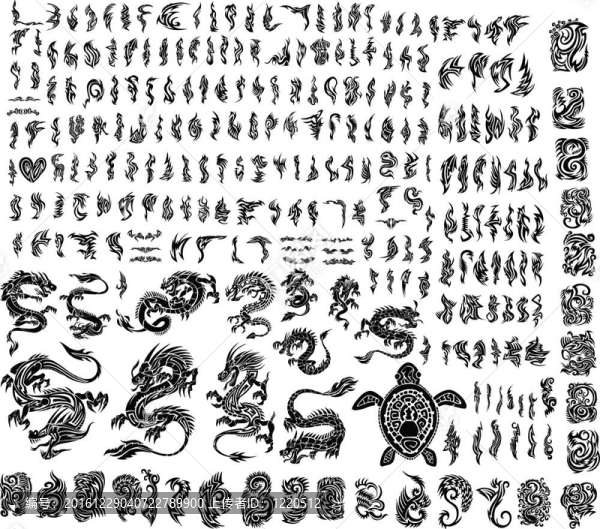 编号：20161229040722789900 上传者ID：1220512